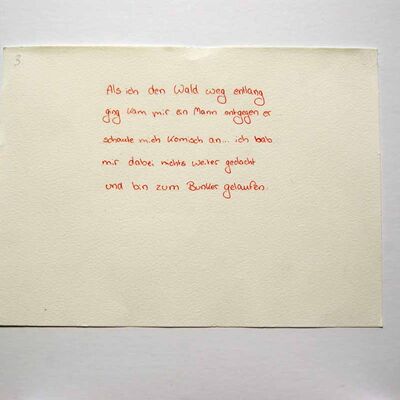 3
Als ich den Wald weg entlang
ging kam mir ein Mann entgegen er
schaute mich komisch an... ich hab
mir dabei nichts weiter gedacht
und bin zum Bunker gelaufen.